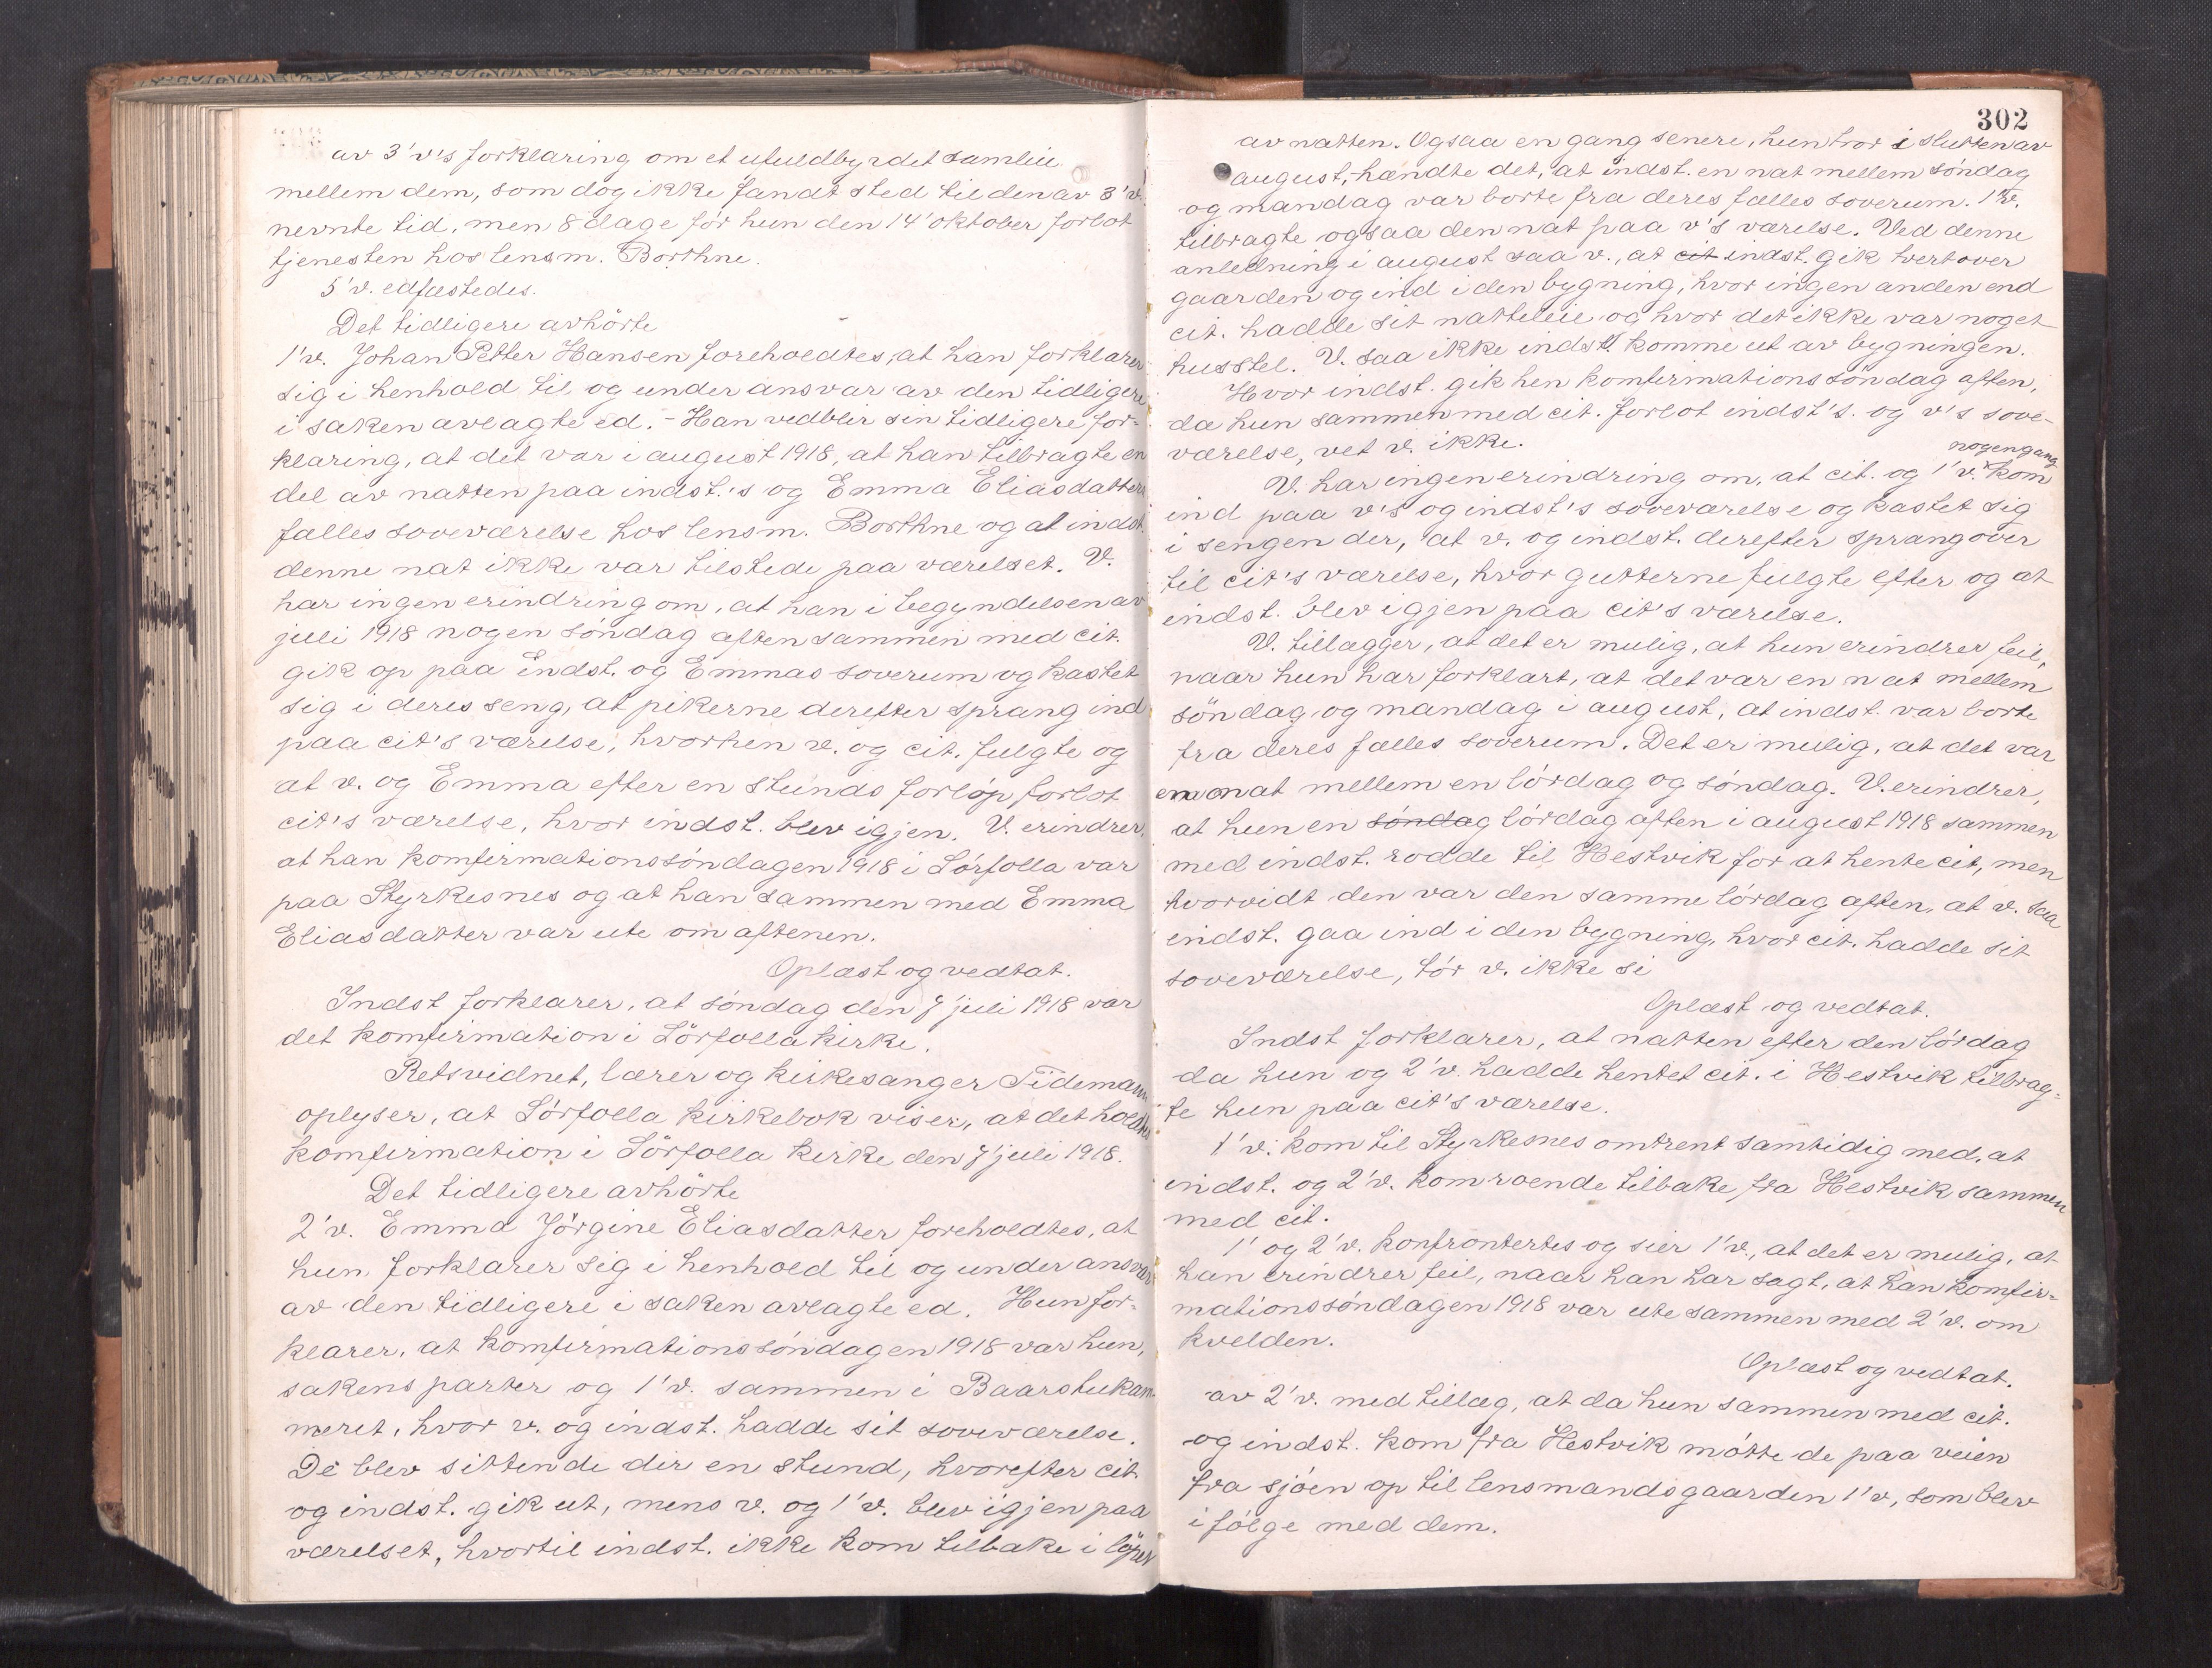 av 3'v's forklaring om et ufuldbyrdet samliv
mellem dem, som dog ikke fandt sted til den av 3'v.
nevnte tid, men 8 dage før hun den 14' oktober forlot
tjenesten hos lensm. Borthne.
5'v. edfæstedes.
Det tidligere avhörte
1'v. Johan Petter Hansen foreholdtes, at han forklarer
sig i henhold til og under ansvar av den tidligere
i saken avlagte ed. - Han vedblir sin tidligere for-
klaring, at det var i august 1918, at han tilbragte en
del av natten paa indst.'s og Emma Eliasdatters
fælles soveværelse hos lensm. Borthne og at indst.
denne nat ikke var tilstede paa værelset. V.
har ingen erindring om, at han i begyndelsen av
juli 1918 nogen söndag aften sammen med cit.
gik op paa indst. og Emmas soverum og kastet
sig i deres seng, at pikerne derefter sprang ind
paa cit's værelse, hvorhen v. og cit. fulgte og
at v. og Emma efter en stunds forløp forlot
cit's værelse, hvor indst. blev igjen. V. erindrer,
at han komfirmationssöndagen 1918 i Sörfolla var
paa Styrkesnes og at han sammen med Emma
Eliasdatter var ute om aftenen.
Oplæst og vedtat.
Indst forklarer, at söndag den 7' juli 1918 var
det komfirmation i Sörfolla kirke.
Retsvidnet, lærer og kirkesanger Tidemann
oplyser, at Sörfolla kirkebok viser, at det holdtes
komfirmation i Sörfolla kirke den 7' juli 1918.
Det tidligere avhörte
2'v. Emma Jörgine Eliasdatter foreholdtes, at
hun forklarer sig i henhold til og under ansvar
av den tidligere i saken avlagte ed. Hun for-
klarer, at komfirmationssöndagen 1918 var hun,
sakens parter og 1'v. sammen i Baarstukam-
meret, hvor v. og indst. hadde sit soveværelse.
De blev sittende der en stund, hvorefter cit
og indst. gik ut, mens v. og 1'v. blev igjen paa
værelset, hvortil indst. ikke kom tilbake i löpet
302
av natten. Ogsaa en gang senere, hun tror i slutten av
august, hændte det, at indst. en nat mellem söndag
og mandag var borte fra deres fælles soverum. 1'v.
tilbragte ogsaa den nat paa v's værelse. Ved denne
anledning i august saa v., at cit indst. gik tvert over
gaarden og ind i den bygning, hvor ingen anden end
cit. hadde sit natteleie og hvor det ikke var noget
husstel. V. saa ikke indst. komme ut av bygningen.
Hvor indst. gik hen komfirmationssöndag aften,
da hun sammen med cit. forlot indst's. og v's sove-
værelse, vet v. ikke.
nogengang
V. har ingen erindring om, at cit. og 1'v. kom
ind paa v's og indst's soveværelse og kastet sig
i sengen der, at v. og indst. derefter sprang over
til cit's værelse, hvor gutterne fulgte efter og at
indst. blev igjen paa cit's værelse.
V. tillægger, at det er mulig, at hun erindrer feil,
naar hun har forklart, at det var en nat mellem
söndag og mandag i august, at indst. var borte
fra deres fælles soverum. Det er mulig, at det var
en nat mellem en lördag og söndag. V. erindrer,
at hun en söndag lördag aften i august 1918 sammen
med indst. rodde til Hestvik for at hente cit, men
hvorvidt den var den samme lördag aften, at v. saa
indst. gaa ind i den bygning, hvor cit. hadde sit
soveværelse, tör v. ikke si
Oplæst og vedtat.
Indst forklarer, at natten efter den lördag
da hun og 2'v. hadde hentet cit. i Hestvik tilbrag-
te hun paa cit's værelse.
1'v. kom til Styrkesnes omtrent samtidig med, at
indst. og 2'v. kom roende tilbake fra Hestvik sammen
med cit.
1' og 2'v. konfrontertes og sier 1'v., at det er mulig, at
han erindrer feil, naar han har sagt, at han komfir-
mationssöndagen 1918 var ute sammen med 2'v. om
kvelden.
Oplæst og vedtat.
av 2'v. med tillæg, at da hun sammen med cit.
og indst. kom fra Hestvik mötte de paa veien
fra sjöen op til lensmandsgaarden 1'v, som blev
i fölge med dem.